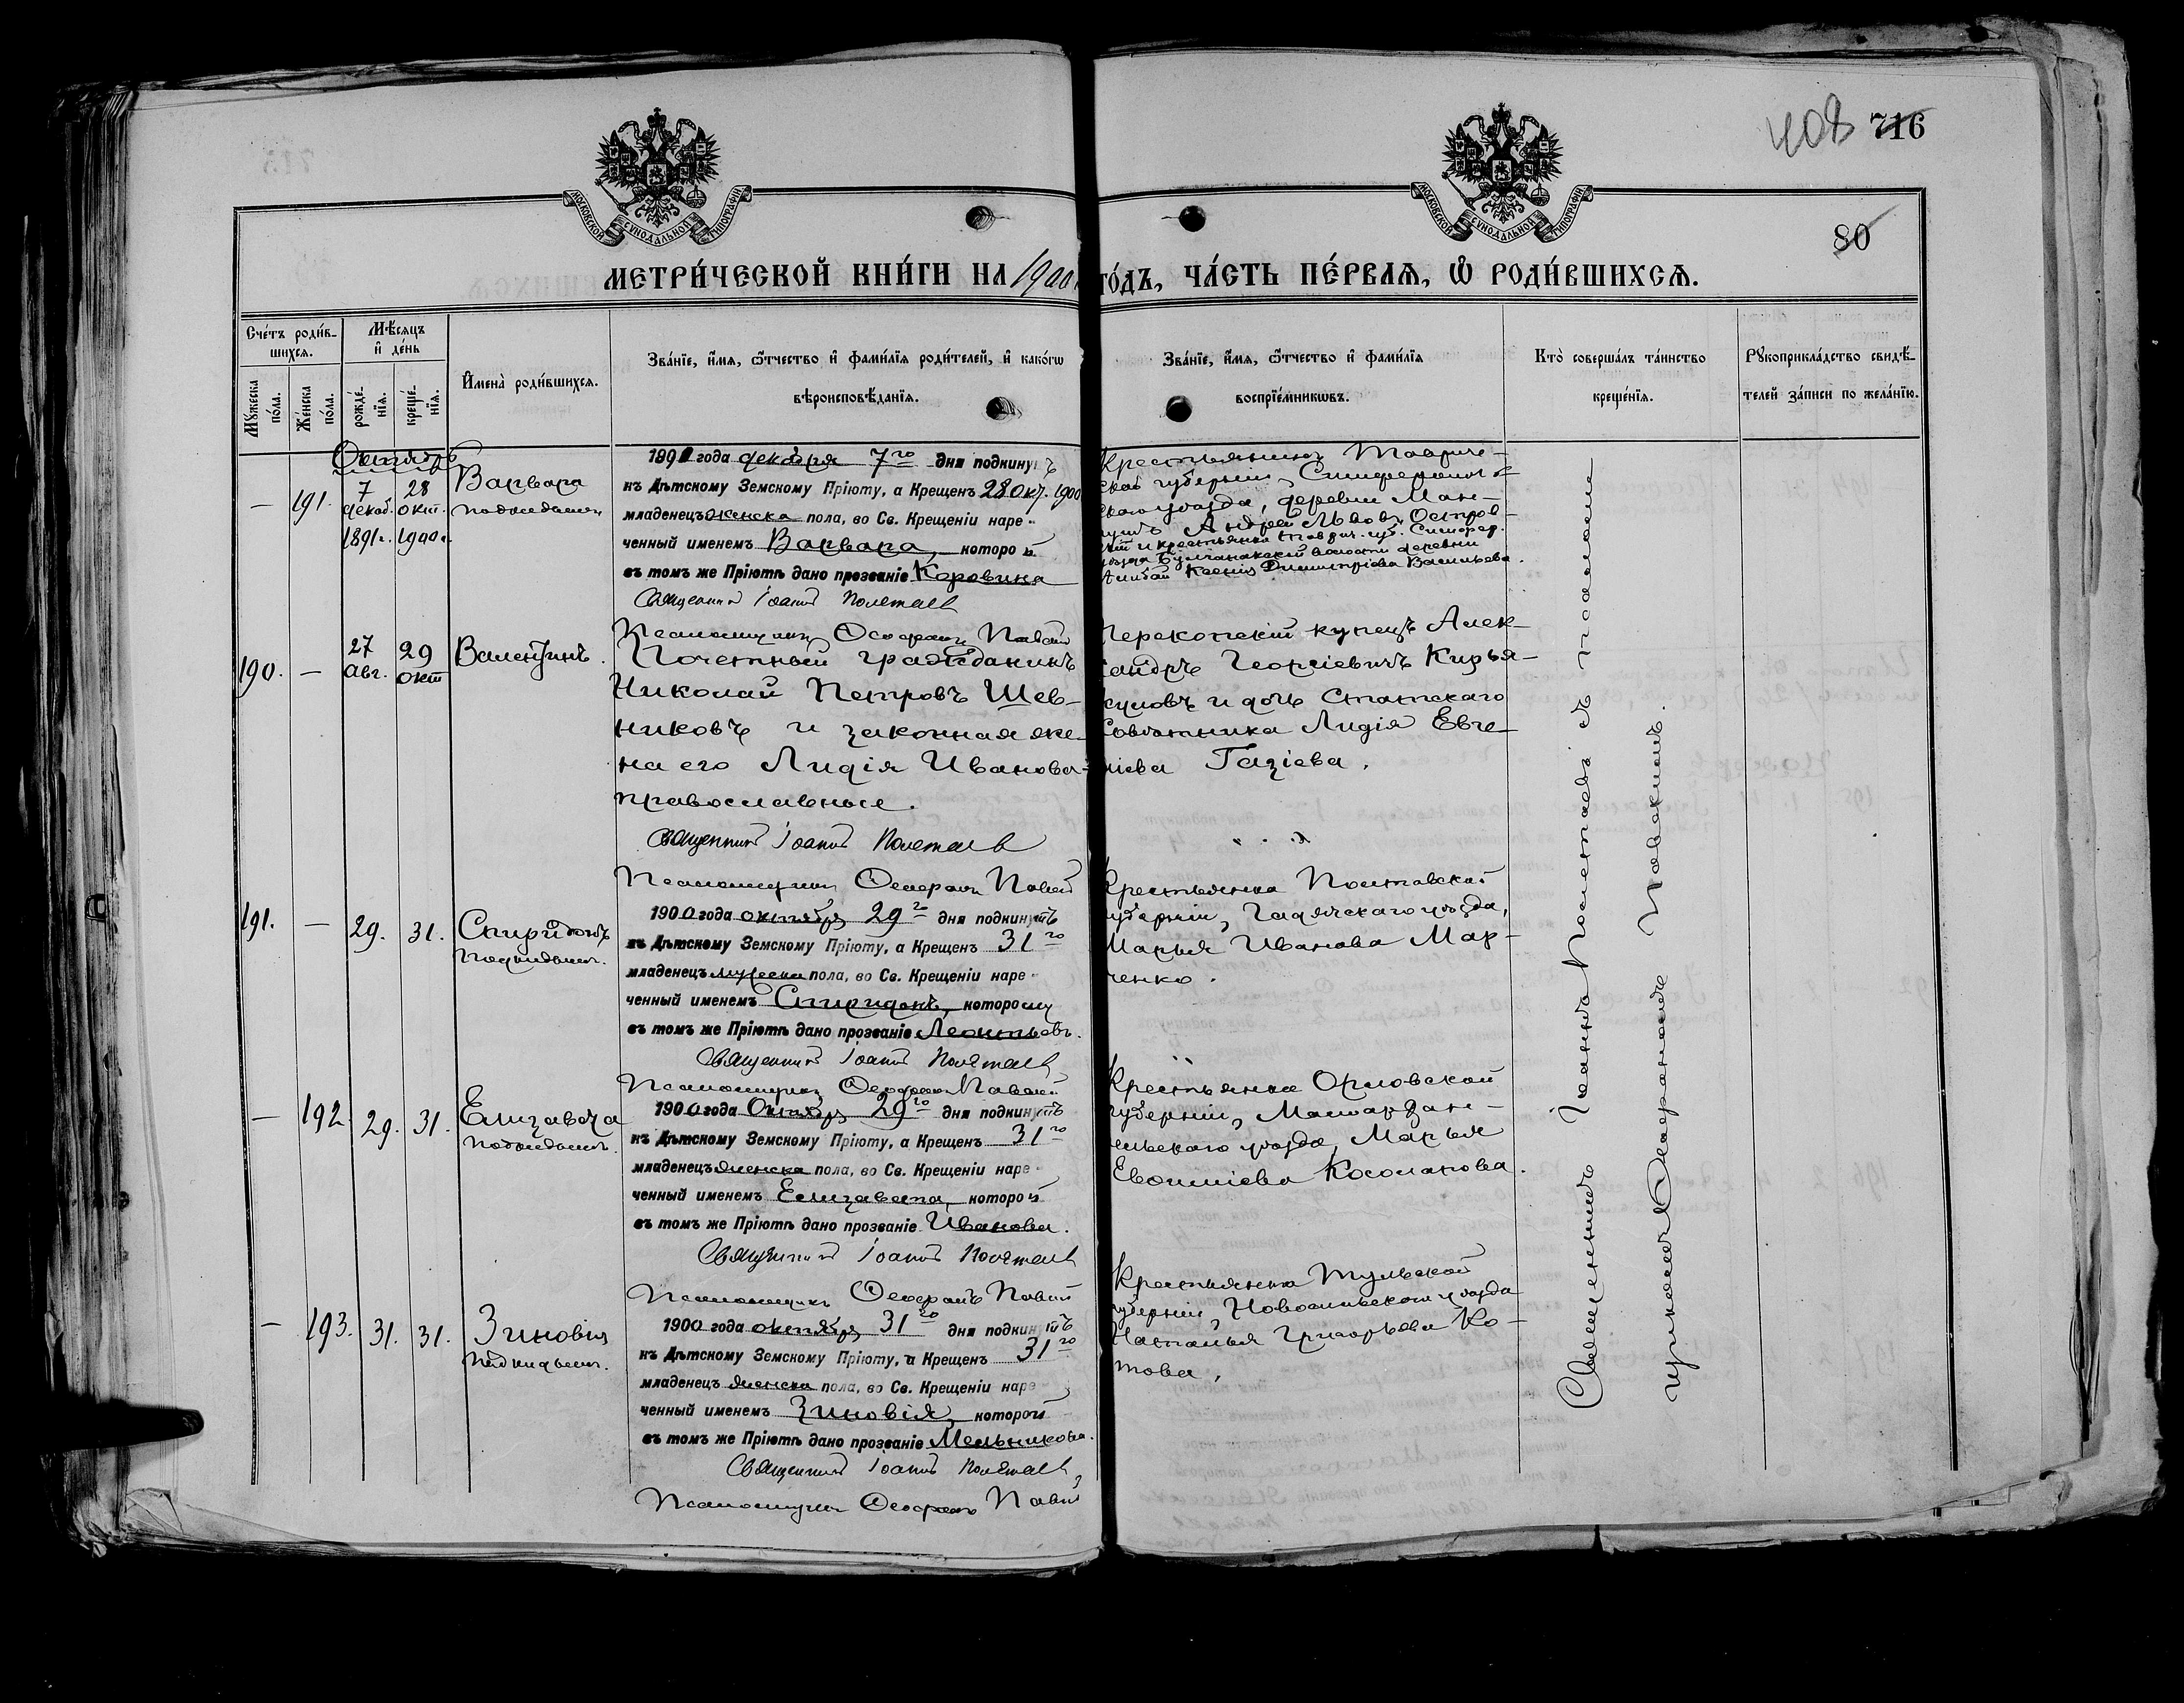 408 716
МОСКОВСКОЙ СѴНОДАЛЬНОЙ ТИПОГРАФІИ
МОСКОВСКОЙ СѴНОДАЛЬНОЙ ТИПОГРАФІИ
80
МЕТРИ́ЧЕСКОЙ КНИ́ГИ НА 1900 ГО́ДЪ, ЧА́СТЬ ПЕ́РВАѦ, Ѡ҆ РОДИ́ВШИХСѦ.
Сче́тъ роди́в-
шихсѧ.
Мѣ́сѧцъ
и҆ де́нь
Мꙋ́жеска
по́ла.
Же́нска
по́ла.
рожде́-
нїѧ.
креще́-
нїѧ.
И҆мена̀ роди́вшихсѧ.
Зва́нїе, и҆́мѧ, ѻ҆́тчество и҆ фами́лїѧ роди́телей, и҆ како́гѡ
вѣроисповѣ́данїѧ.
Зва́нїе, и҆́мѧ, ѻ҆́тчество и҆ фами́лїѧ
воспрїе́мникѡвъ.
Кто̀ соверша́лъ та́инство
креще́нїѧ.
Рꙋкоприкла́дство свидѣ́-
телей за́писи по жела́нїю.
Октябрь
— 191. 7 декаб. 1891 г. 28 окт. 1900 г.
Варвара
подкидышъ
1891 года декабря 7го дня подкинутъ
къ Дѣтскому Земскому Пріюту, а Крещенъ 28 окт. 1900
младенецъ женска пола, во Св. Крещеніи наре-
ченный именемъ Варвара, которой
въ томъ же Пріютѣ дано прозваніе Коровина
Священникъ Іоаннъ Полетаевъ
Псаломщикъ
Крестьянинъ Тавриче-
ской губерніи, Симферополь-
скаго уѣзда, деревни Ман-
Андрей Львовъ Остров-
скій и крестьянка Таврич. губ. Симфер.
уѣзда Булганакской волости деревни
Ксенія Димитріева Васильева.
190. — 27 авг. 29 окт
Валентинъ.
Почетный гражданинъ
Николай Петровъ Шев-
никовъ и законная же-
на его Лидія Иванова
православные.
Священникъ Іоаннъ Полетаевъ
Псаломщикъ
Перекопскій купецъ Алек-
сандръ Георгіевичъ Кирья-
куловъ и дочь Статскаго
Совѣтника Лидія Евге-
ніева Газіева.
191. — 29. 31.
Спиридонъ
подкидышъ.
1900 года октября 29го дня подкинутъ
къ Дѣтскому Земскому Пріюту, а Крещенъ 31го
младенецъ мужеска пола, во Св. Крещеніи наре-
ченный именемъ Спиридонъ, которому
въ томъ же Пріютѣ дано прозваніе Леонтьевъ.
Священникъ Іоаннъ Полетаевъ
Псаломщикъ
Крестьянка Полтавской
губерніи, Гадячскаго уѣзда,
Марья Иванова Мар-
ченко.
— 192 29. 31.
Елизавета
подкидышъ.
1900 года Октября 29го дня подкинутъ
къ Дѣтскому Земскому Пріюту, а Крещенъ 31го
младенецъ женска пола, во Св. Крещеніи наре-
ченный именемъ Елизавета, которой
въ томъ же Пріютѣ дано прозваніе Иванова.
Священникъ Іоаннъ Полетаевъ
Псаломщикъ
Крестьянка Орловской
губерніи, Малоархан-
гельскаго уѣзда, Марья
Евфиміева Косолапова.
— 193. 31. 31.
Зиновія
подкидышъ.
1900 года октября 31го дня подкинутъ
къ Дѣтскому Земскому Пріюту, а Крещенъ 31го
младенецъ женска пола, во Св. Крещеніи наре-
ченный именемъ Зиновія, которой
въ томъ же Пріютѣ дано прозваніе Мельникова.
Священникъ Іоаннъ Полетаевъ
Псаломщикъ
Крестьянка Тульской
губерніи, Новосильскаго уѣзда
Наталья Григорьева Ко-
това.
Священникъ Іоаннъ Полетаевъ съ псаломщ-